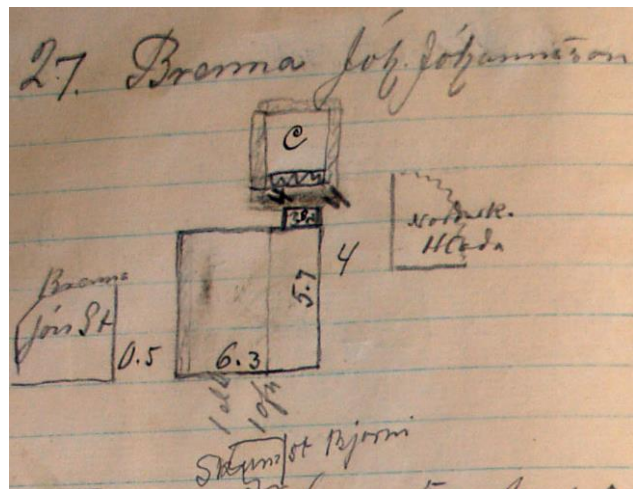 27. Brenna Jóh. Jóhannsson
C
4 4
Norðurk.
Hlaða
4
5.7
Brenna
Jóns St
0.5
6.3
1 eld
1 ofn
Skúm St Bjarni